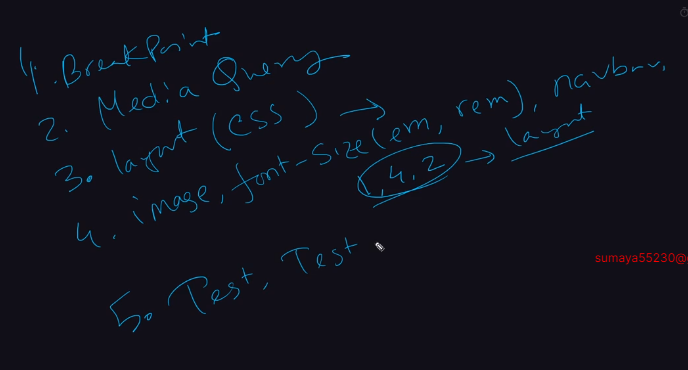 1. BreakPoint
2. Media Query
3. layout (css) →
4. image, font-size (em, rem), navbar,
1, 4, 2 → layout
5. Test, Test
sumaya55230@